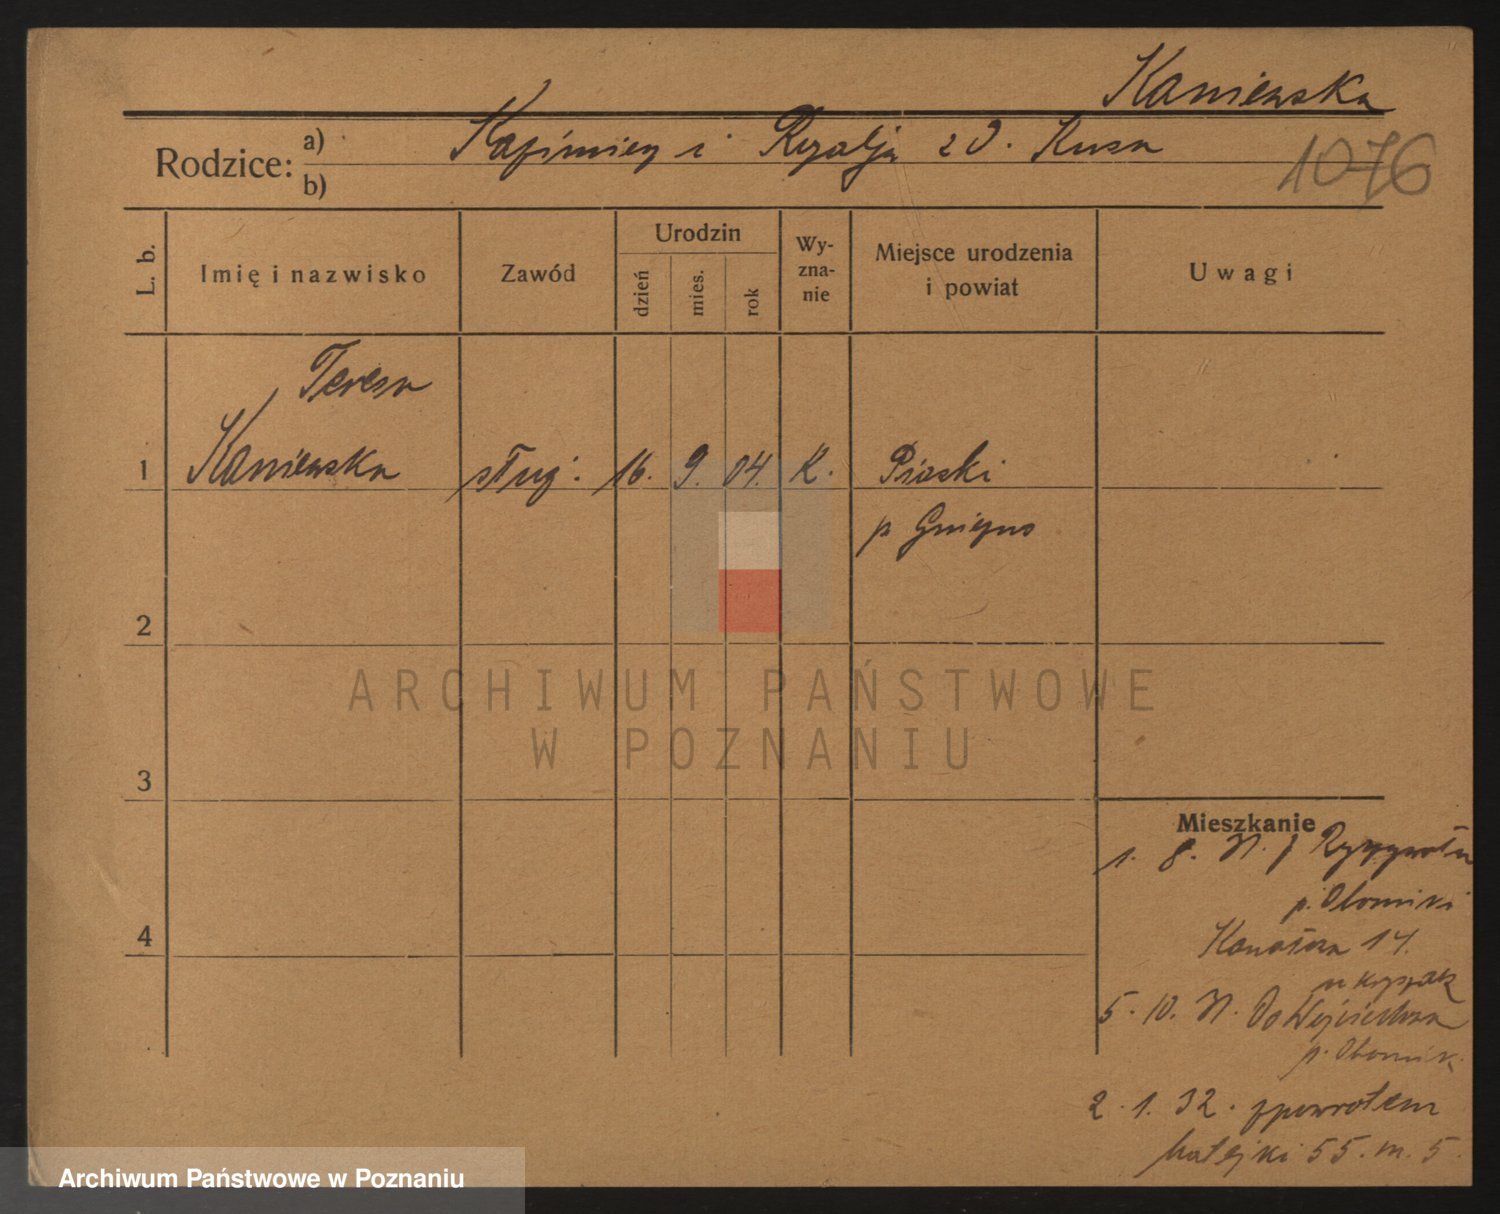 Kaniewska
Rodzice: a) Kazimierz i Rozalja z d. Kusa
b)
1076
L. b.
Imię i nazwisko
Zawód
Urodzin
dzień
mies.
rok
Wy-
zna-
nie
Miejsce urodzenia
i powiat
Uwagi
Teresa
1 Kaniewska służ. 16. 9. 04. K. Piaski
p Gniezno
2
ARCHIWUM PAŃSTWOWE
W POZNANIU
3
Mieszkanie
1. 8. 31. z
p. Oborniki
4
14.
u
5. 10. 31. Do
p. Obornik.
2. 1. 32. zpowrotem
Matejki 55. m. 5.
Archiwum Państwowe w Poznaniu